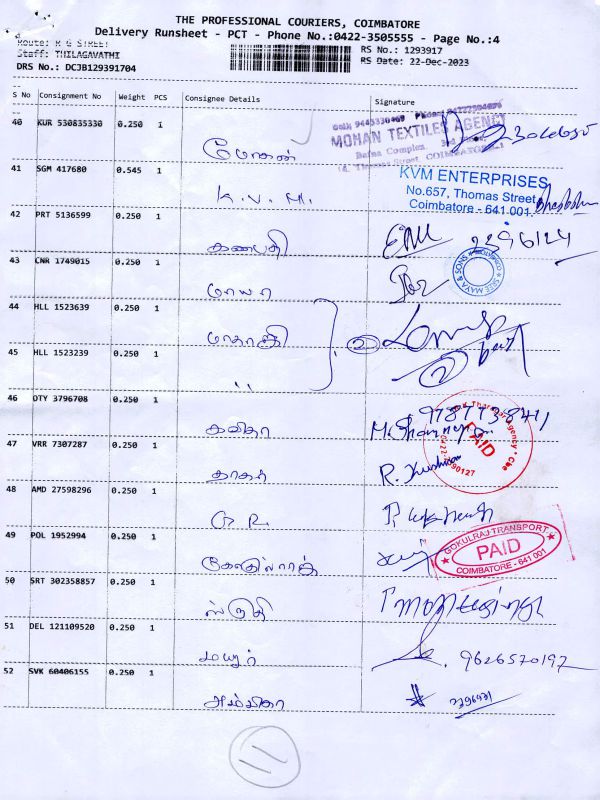 THE PROFESSIONAL COURIERS, COIMBATORE
Delivery Runsheet - PCT - Phone No.:0422-3505555 - Page No.:4
Route: R G STREET
Staff: THILAGAVATHI
DRS No: DCJB129391704
RS No.: 1293917
RS Date: 22-Dec-2023
S No Consignment No Weight PCS Consignee Details Signature
40 KUR 530835330 0.250 1 மோகன்
MOHAN TEXTILES AGENCY
Bafna Complex,
Thomas Street, COIMBATORE-1
41 SGM 417680 0.545 1 K.V.M.
KVM ENTERPRISES
No.657, Thomas Street
Coimbatore - 641 001.
42 PRT 5136599 0.250 1 கணபதி 2396124
43 CNR 1749015 0.250 1 மாயா
SREE MAYA & SONS
44 HLL 1523639 0.250 1
45 HLL 1523239 0.250 1 " 2
46 DTY 3796708 0.250 1 கவிதா
PAID
47 VRR 7307287 0.250 1 தாகூர்
48 AMD 27598296 0.250 1 G.R.
49 POL 1952994 0.250 1 கோகுல்ராஜ்
GOKULRAJ TRANSPORT
PAID
COIMBATORE - 641 001
50 SRT 302358857 0.250 1 ஸ்ருதி
51 DEL 121109520 0.250 1 மயூர் 9626570197
52 SVK 60406155 0.250 1 அம்பிகா
11